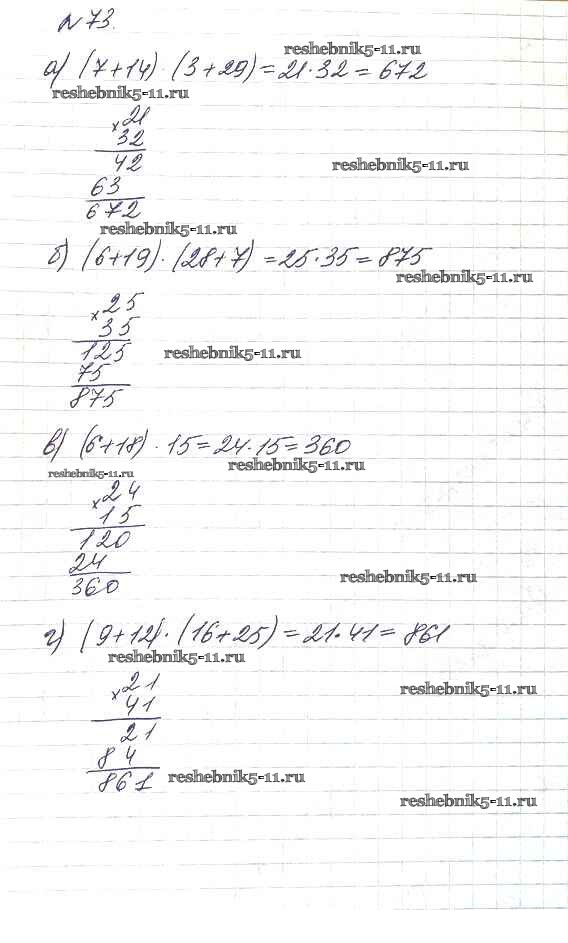 № 73.
reshebnik5-11.ru
а) (7+14)·(3+29)=21·32=672
reshebnik5-11.ru
×21
32
42
reshebnik5-11.ru
63
672
reshebnik5-11.ru
б) (6+19)·(28+7)=25·35=875
reshebnik5-11.ru
×25
35
125
reshebnik5-11.ru
75
875
в) (6+18)·15=24·15=360
reshebnik5-11.ru
reshebnik5-11.ru
×24
15
120
24
360
reshebnik5-11.ru
г) (9+12)·(16+25)=21·41=861
reshebnik5-11.ru
×21
reshebnik5-11.ru
41
21
84
861
reshebnik5-11.ru
reshebnik5-11.ru